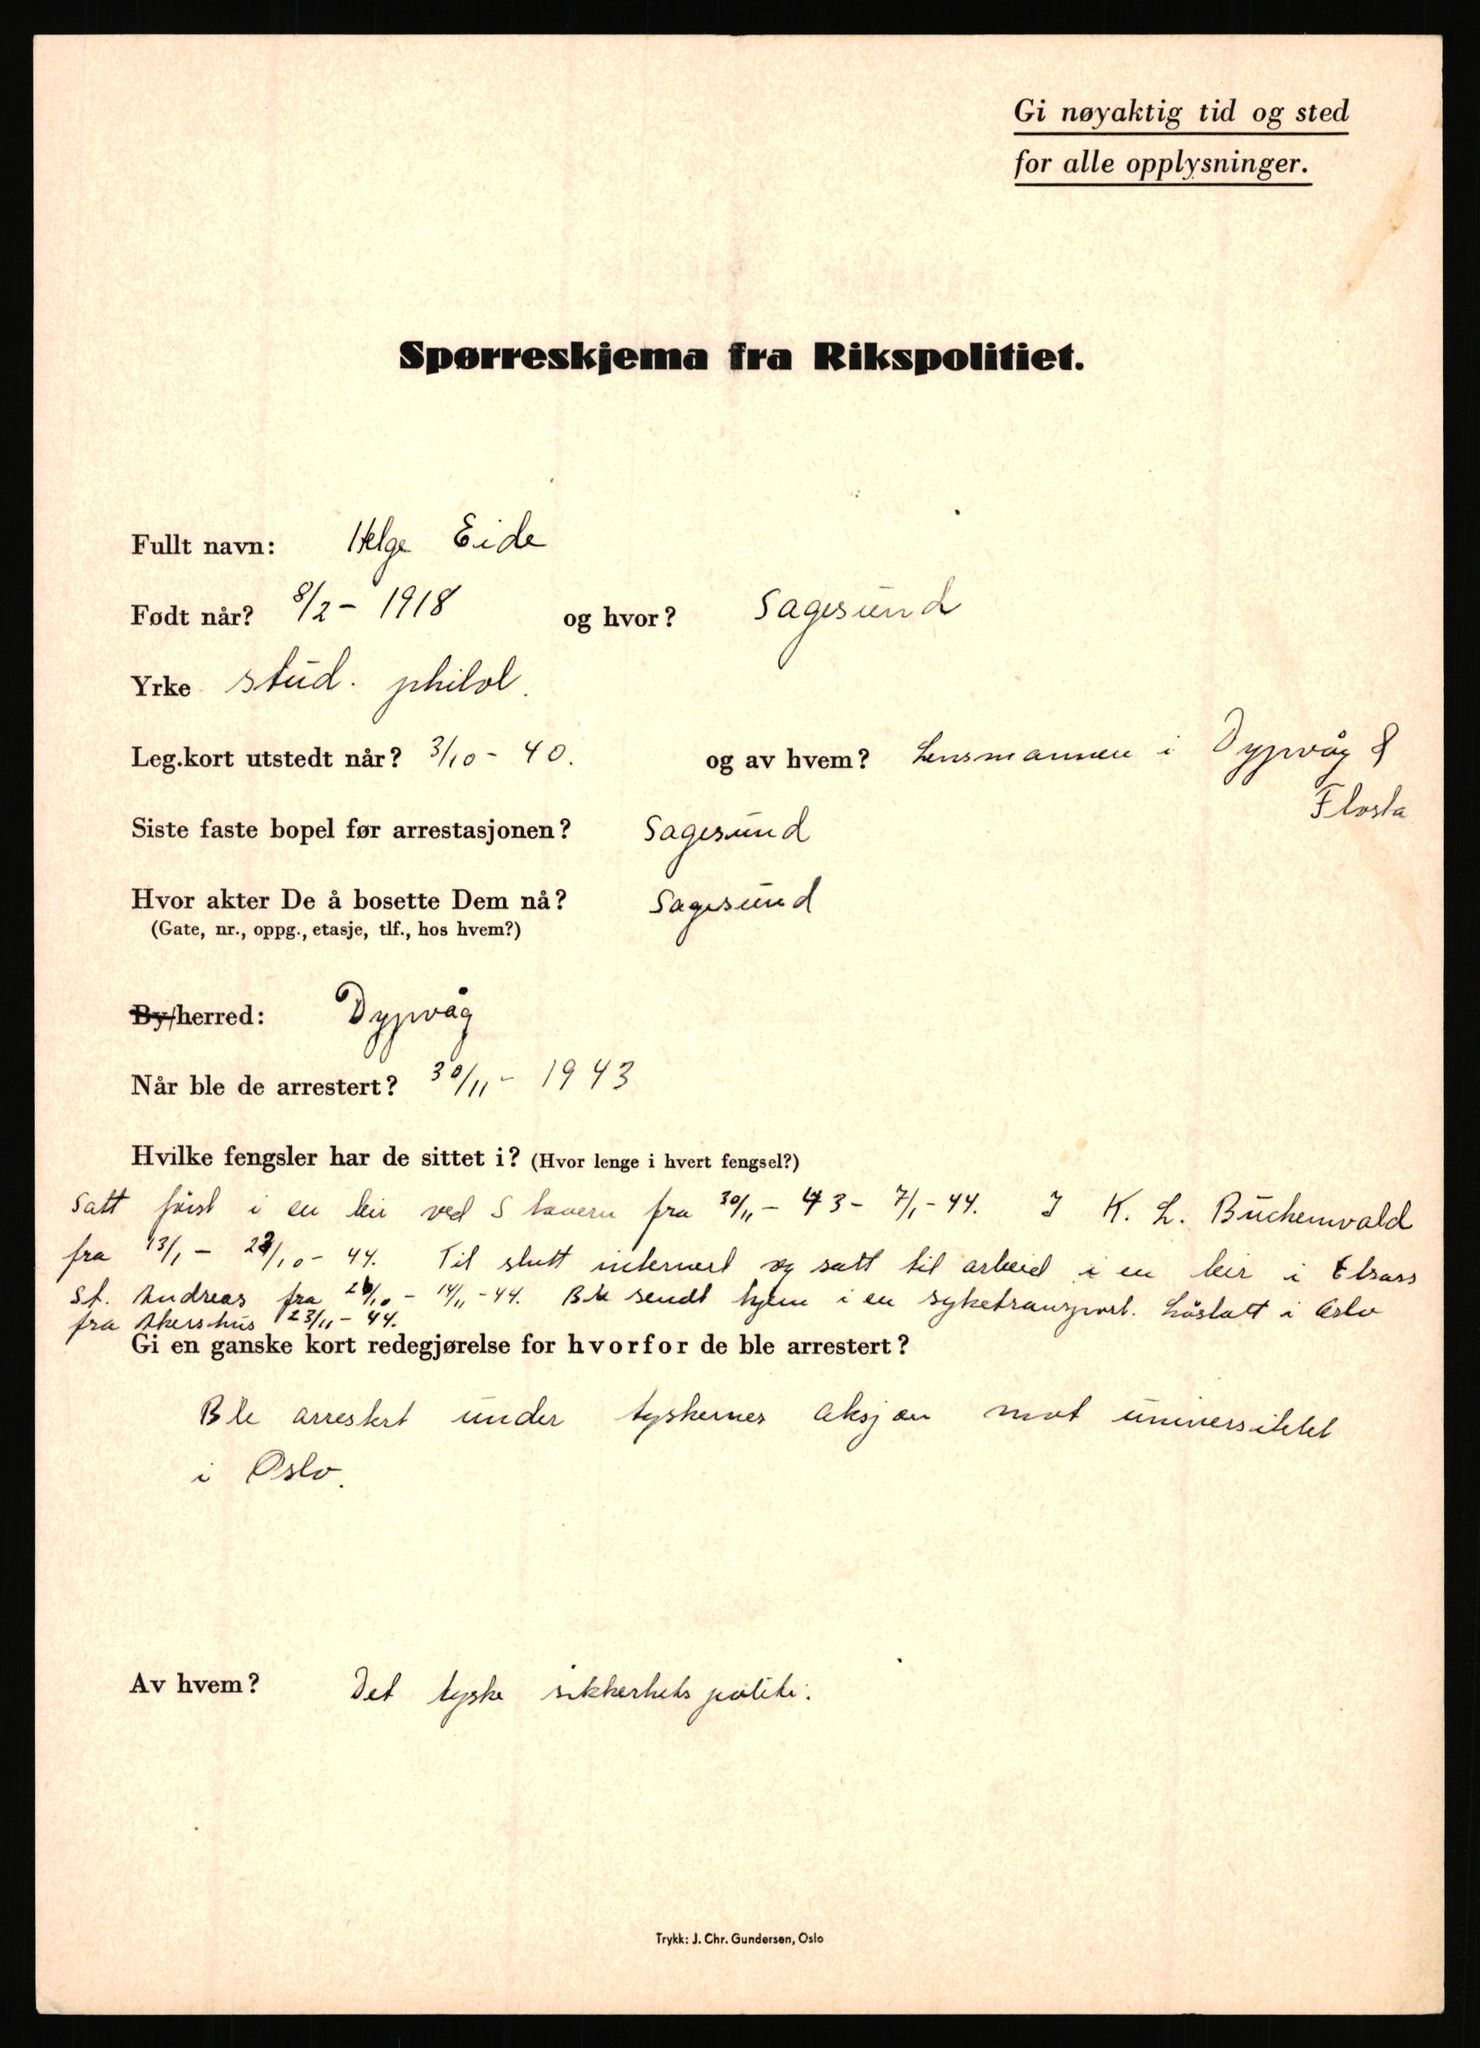 Gi nøyaktig tid og sted
for alle opplysninger.
Spørreskjema fra Rikspolitiet.
Fullt navn: Helge Eide
Født når? 8/2 - 1918 og hvor? Sagesund
Yrke stud. philol.
Leg.kort utstedt når? 3/10 - 40. og av hvem? Lensmannen i Dypvåg &
Flosta
Siste faste bopel før arrestasjonen? Sagesund
Hvor akter De å bosette Dem nå? Sagesund
(Gate, nr., oppg., etasje, tlf., hos hvem?)
By/herred: Dypvåg
Når ble de arrestert? 30/11 - 1943
Hvilke fengsler har de sittet i? (Hvor lenge i hvert fengsel?)
Satt först i en leir ved Stavern fra 30/11 - 43 - 7/1 - 44. I K. L. Buchenwald
fra 13/1 - 23/10 - 44. Til slutt internert og satt til arbeid i en leir i Elsass
St. Andreas fra 26/10 - 14/11 - 44. Ble sendt hjem i en syketransport. Löslatt i Oslo
fra Akershus 23/11 - 44.
Gi en ganske kort redegjørelse for hvorfor de ble arrestert?
Ble arrestert under tyskernes aksjon mot universitetet
i Oslo.
Av hvem? Det tyske sikkerhetspoliti.
Trykk: J. Chr. Gundersen, Oslo